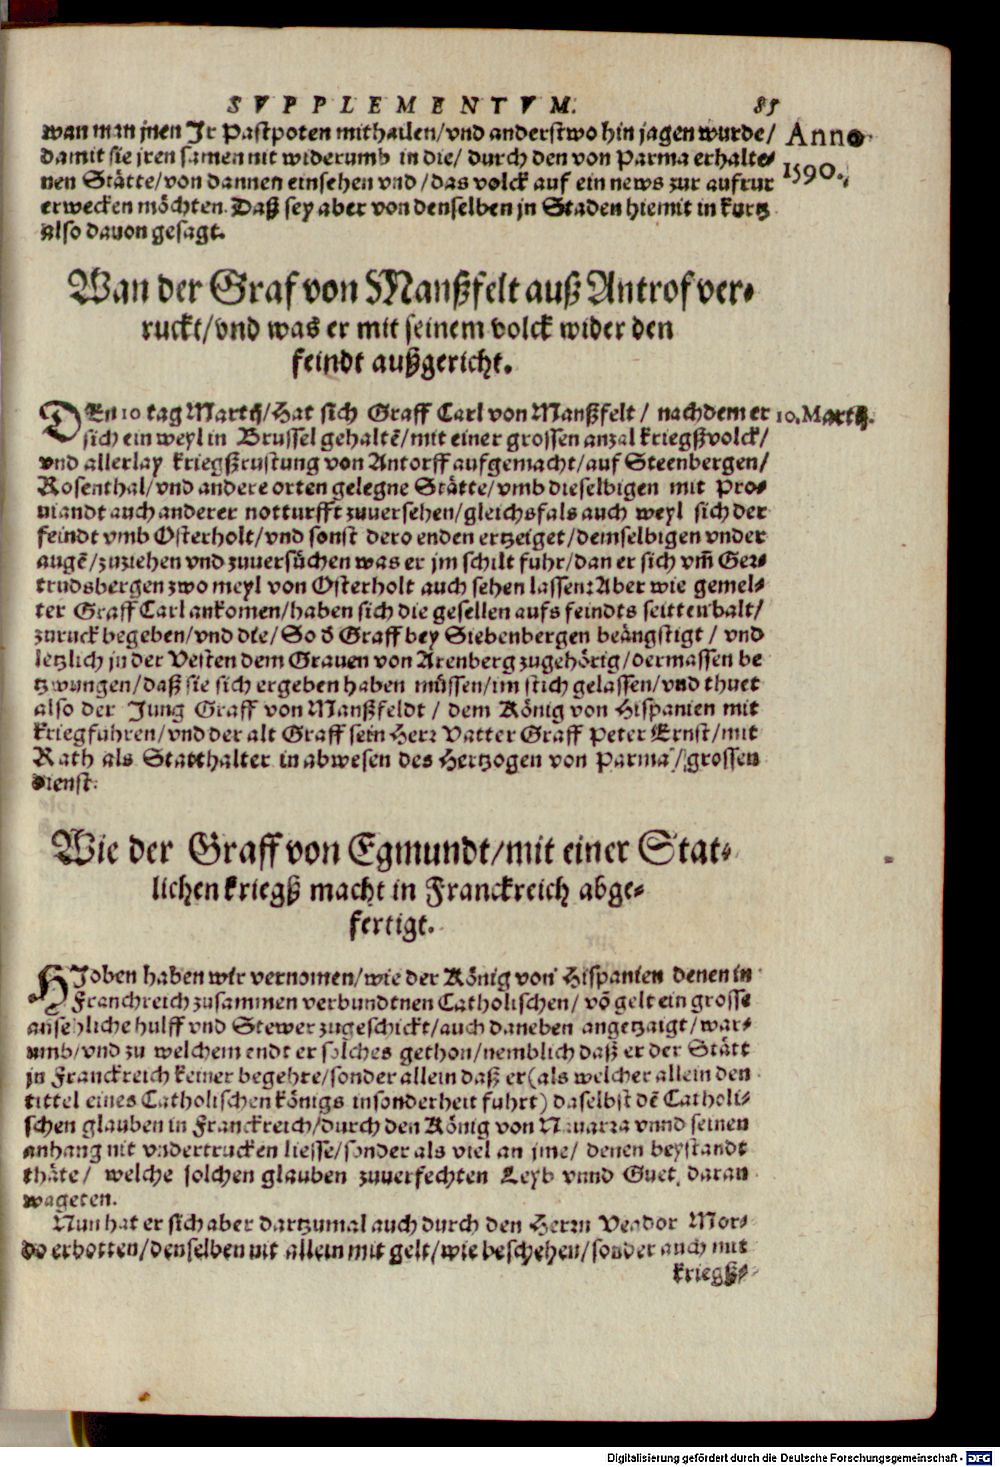 SVPPLEMENTVM. 85
wan man jnen Jr Pastpoten mithailen/vnd anderstwo hin jagen wurde/ Anno
damit sie jren samen nit widerumb in die/ durch den von Parma erhalte- 1590.
nen Stätte/von dannen einsehen vnd/das volck auf ein news zur aufrur
erwecken möchten. Daß sey aber von denselben jn Staden hiemit in kurtz
also dauon gesagt.
Wan der Graf von Manßfelt auß Antrof ver-
ruckt/vnd was er mit seinem volck wider den
feindt außgericht.
DEn 10 tag Martij/Hat sich Graff Carl von Manßfelt/ nachdem er 10. Martij.
sich ein weyl in Brussel gehaltē/mit einer grossen anzal kriegßvolck/
vnd allerlay kriegßrustung von Antorff aufgemacht/auf Steenbergen/
Rosenthal/vnd andere orten gelegne Stätte/vmb dieselbigen mit Pro-
uiandt auch anderer notturfft zuuersehen/gleichsfals auch weyl sich der
feindt vmb Osterholt/vnd sonst dero enden ertzeiget/demselbigen vnder
augē/zuziehen vnd zuuersůchen was er jm schilt fuhr/dan er sich vm̄ Ger-
trudsbergen zwo meyl von Osterholt auch sehen lassen: Aber wie gemel-
ter Graff Carl ankomen/haben sich die gesellen aufs feindts seitten balt/
zuruck begeben/vnd die/So d̄ Graff bey Siebenbergen beängstigt/ vnd
letzlich jn der Vesten dem Grauen von Arenberg zugehörig/dermassen be
tzwungen/daß sie sich ergeben haben müssen/im stich gelassen/vnd thuet
also der Jung Graff von Manßfeldt/ dem König von Hispanien mit
kriegfuhren/vnd der alt Graff sein Herr Vatter Graff Peter Ernst/mit
Rath als Statthalter in abwesen des Hertzogen von Parma/grossen
dienst.
Wie der Graff von Egmundt/mit einer Stat-
lichen kriegß macht in Franckreich abge-
fertigt.
HJoben haben wir vernomen/wie der König von Hispanien denen in
Franchreich zusammen verbundtnen Catholischen/ vō gelt ein grosse
ansehliche hulff vnd Stewer zugeschickt/auch daneben angetzaigt/war-
umb/vnd zu welchem endt er solches gethon/nemblich daß er der Stätt
jn Franckreich keiner begehre/sonder allein daß er (als welcher allein den
tittel eines Catholischen königs insonderheit fuhrt) daselbst dē Catholi-
schen glauben in Franckreich/durch den König von Nauarra vnnd seinen
anhang nit vndertrucken liesse/sonder als viel an jme/ denen beystandt
thäte/ welche solchen glauben zuuerfechten Leyb vnnd Guet, daran
wageten.
Nun hat er sich aber dartzumal auch durch den Herrn Veador Mor-
do erbotten/denselben nit allein mit gelt/wie beschehen/sonder auch mit
kriegß-
Digitalisierung gefördert durch die Deutsche Forschungsgemeinschaft - DFG